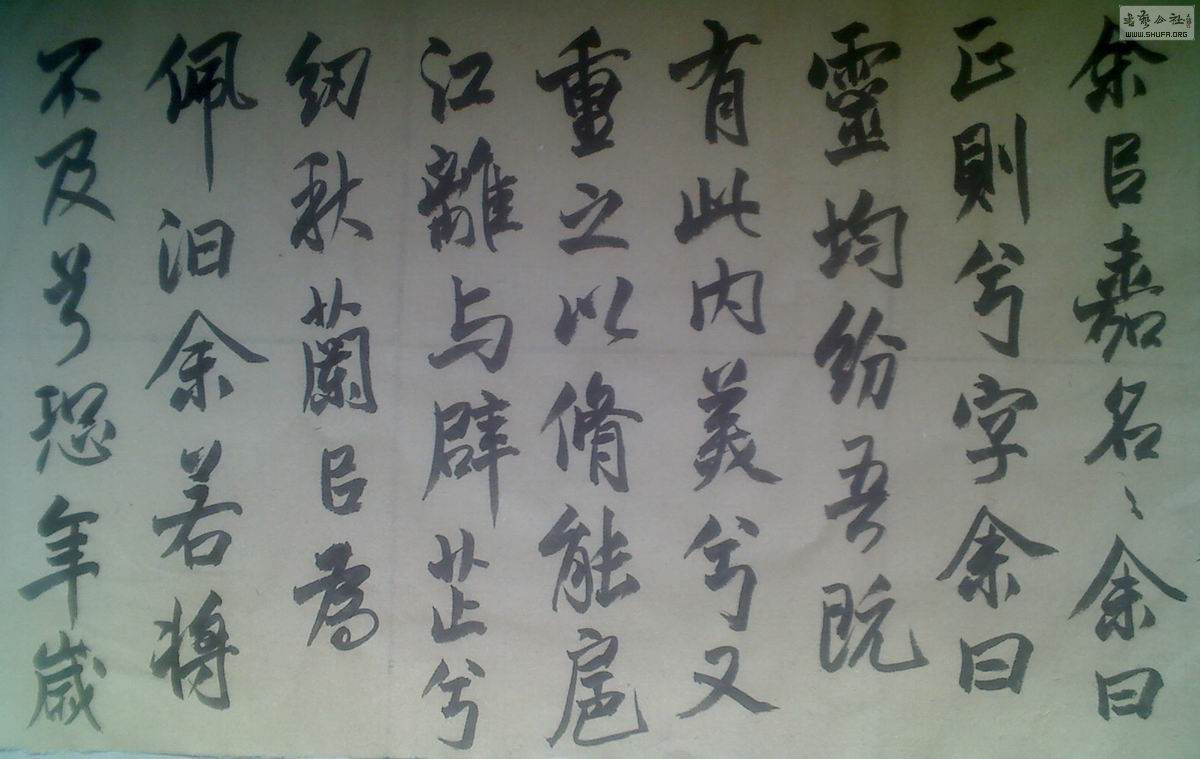 余㠯嘉名〻余曰
正則兮字余曰
靈均紛吾既
有此内美兮又
重之以脩能扈
江離与辟芷兮
紉秋蘭㠯為
佩汩余若將
不及兮恐年歲
书艺公社
WWW.SHUFA.ORG